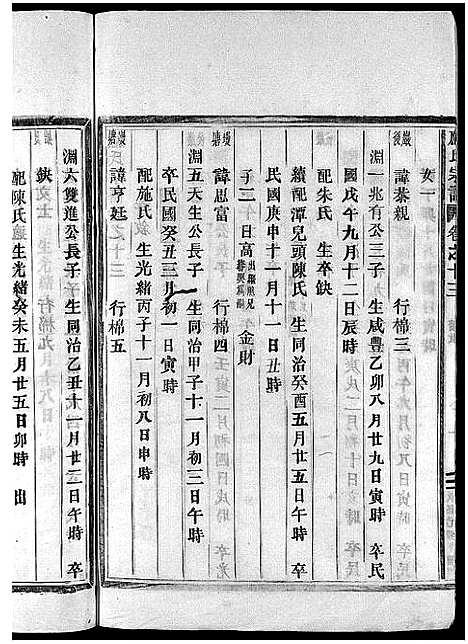 氏宗譜 卷之十三
女一
諱恭親 行棉三
淵一兆有公三子 生咸豐乙卯八月廿九日寅時 卒民
國戊午九月十二日辰時
配朱氏 生卒缺
續配潭兒頭陳氏 生同治癸酉五月廿五日午時 卒
民國庚申十一月十一日丑時
子二 日高 金財
諱思富 行棉四
淵五天生公長子 生同治甲子十一月初三日午時
卒民國癸丑三月初一日寅時
配施氏 生光緒丙子十一月初八日申時
諱亨廷 行棉五
淵六雙進公長子 生同治乙丑十一月廿三日午時 卒
缺
配陳氏 生光緒癸未五月廿五日卯時 出